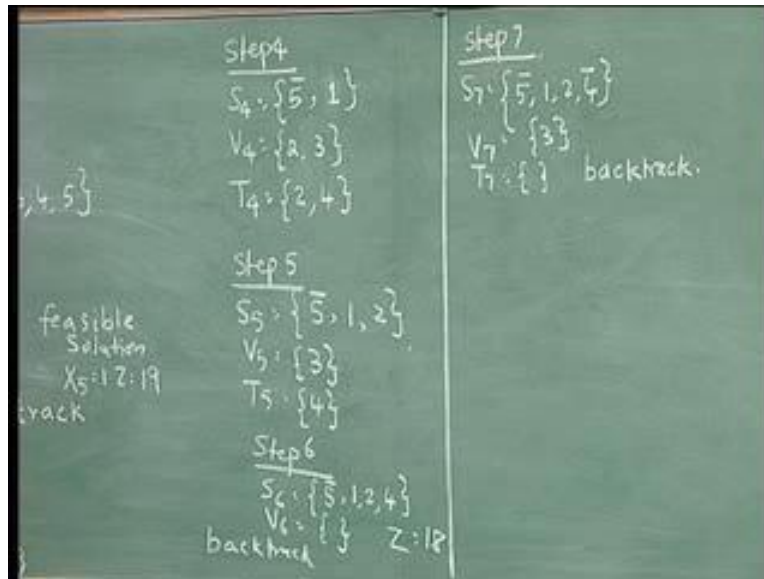 , 4, 5}
feasible
Solution
X5 = 1 Z = 19
track
Step 4
S4 = {5̄, 1}
V4 = {2, 3}
T4 = {2, 4}
Step 5
S5 = {5̄, 1, 2}
V5 = {3}
T5 = {4}
Step 6
S6 = {5̄, 1, 2, 4}
V6 = { } Z = 18
backtrack
Step 7
S7 = {5̄, 1, 2, 4̄}
V7 = {3}
T7 = { } backtrack.